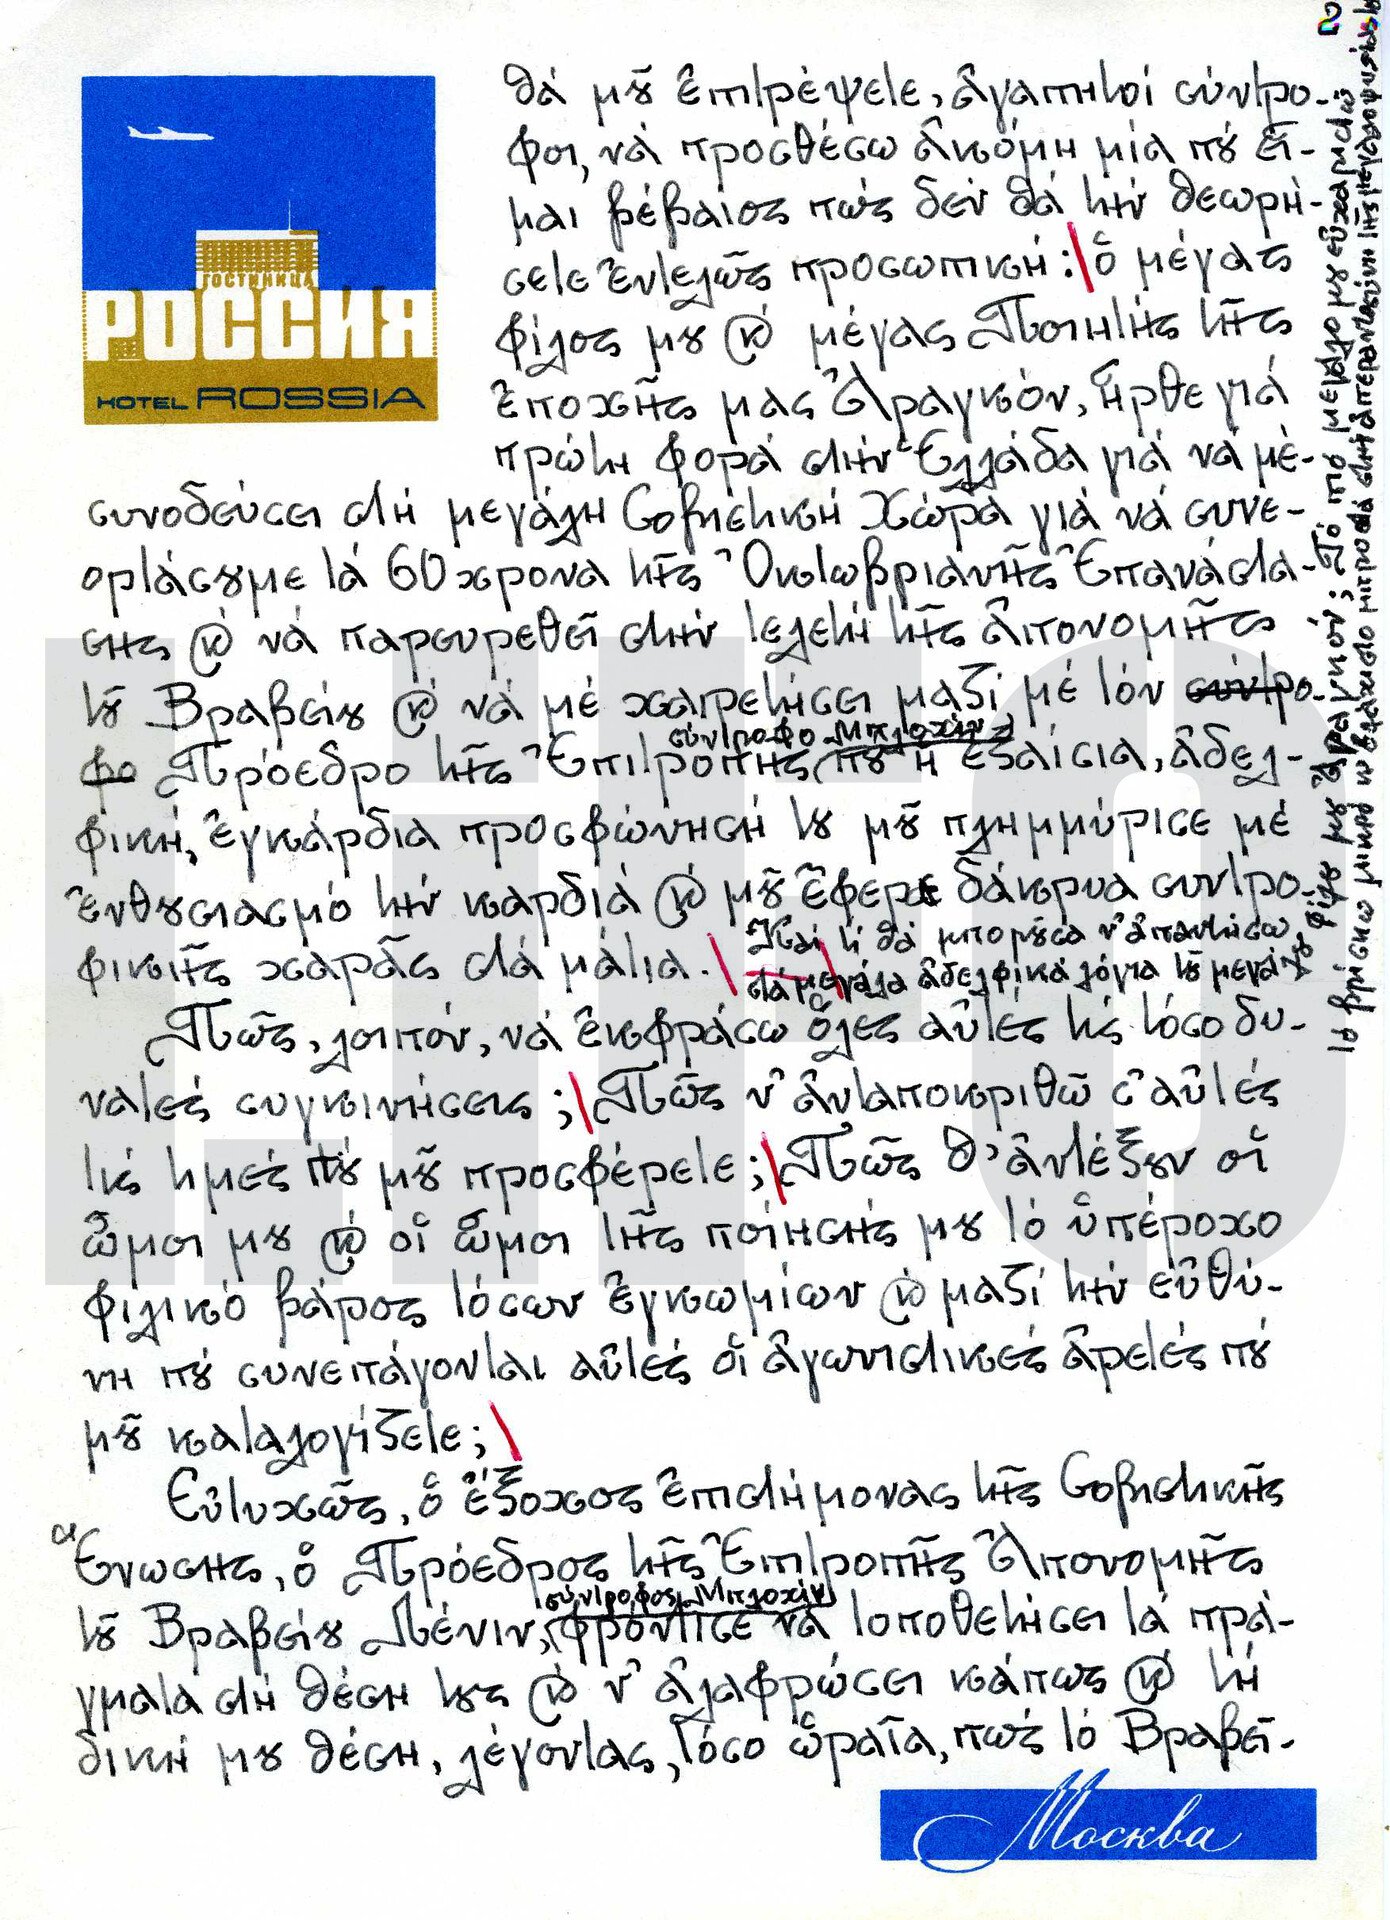 2
ГОСТИНИЦА
РОССИЯ
HOTEL ROSSIA
θά μοῦ ἐπιτρέψετε, ἀγαπητοί σύντρο-
φοι, νά προσθέσω ἀκόμη μία πού εἶ-
μαι βέβαιος πώς δέν θά τήν θεωρή-
σετε ἐντελῶς προσωπική: ὁ μέγας
φίλος μου καί μέγας Ποιητής τῆς
ἐποχῆς μας Ἀραγκόν, ἦρθε γιά
πρώτη φορά στήν Ἑλλάδα γιά νά μέ
συνοδεύσει στή μεγάλη Σοβιετική Χώρα γιά νά συνε-
ορτάσουμε τά 60χρονα τῆς Ὀκτωβριανῆς Ἐπανάστα-
σης καί νά παρευρεθεῖ στήν τελετή τῆς ἀπονομῆς
τοῦ Βραβείου καί νά μέ χαιρετήσει μαζί μέ τόν σύντρο-
σύντροφο Μπλοχίν
φο Πρόεδρο τῆς Ἐπιτροπῆς πού ἡ ἐξαίσια, ἀδελ-
φική, ἐγκάρδια προσφώνησή του μοῦ πλημμύρισε μέ
ἐνθουσιασμό τήν καρδιά καί μοῦ ἔφερε δάκρυα συντρο-
φικῆς χαρᾶς στά μάτια. Καί τί θά μποροῦσα ν' ἀπαντήσω
στά μεγάλα ἀδελφικά λόγια τοῦ μεγά-
λου φίλου μου Ἀραγκόν; Τό πιό μεγάλο μου εὐχαριστῶ
τό βρίσκω μικρό κι ἐλάχιστο μπροστά στήν ἀπεραντοσύνη τῆς μεγαλοψυχίας του
Πῶς, λοιπόν, νά ἐκφράσω ὅλες αὐτές τίς τόσο δυ-
νατές συγκινήσεις; Πῶς ν' ἀνταποκριθῶ σ' αὐτές
τίς τιμές πού μοῦ προσφέρετε; Πῶς θ' ἀντέξουν οἱ
ὦμοι μου καί οἱ ὦμοι τῆς ποίησής μου τό ὑπέροχο
φιλικό βάρος τόσων ἐγκωμίων καί μαζί τήν εὐθύ-
νη πού συνεπάγονται αὐτές οἱ ἀγωνιστικές ἀρετές πού
μοῦ καταλογίζετε;
Εὐτυχῶς, ὁ ἔξοχος ἐπιστήμονας τῆς Σοβιετικῆς
Ἕνωσης, ὁ Πρόεδρος τῆς Ἐπιτροπῆς Ἀπονομῆς
σύντροφος Μπλοχίν
τοῦ Βραβείου Λένιν, φρόντισε νά τοποθετήσει τά πρά-
γματα στή θέση τους καί ν' ἀλαφρώσει κάπως καί τή
δική μου θέση, λέγοντας, τόσο ὡραῖα, πώς τό Βραβεῖ-
Москва